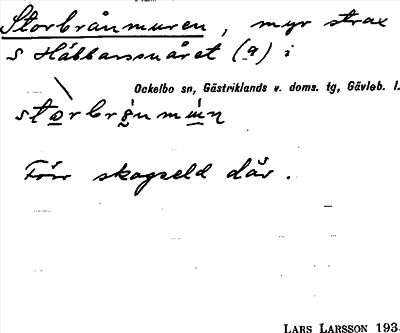 Storbrånmuren, myr strax
S Håbbarssnåret (a) i
Ockelbo sn, Gästriklands v. doms. tg, Gävleb. l.
Förr skogseld där.
LARS LARSSON 193